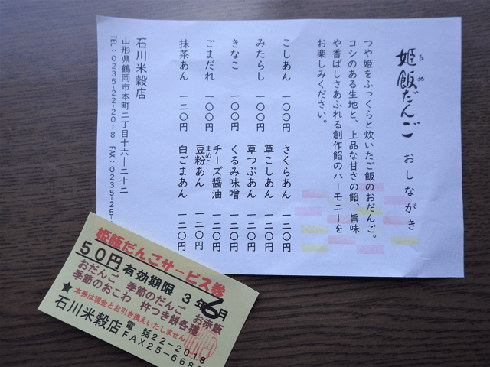 姫飯だんご おしながき
ひめ
つや姫をふっくらと炊いたご飯のおだんご。
コシのある生地と、上品な甘さの餡、旨味
や香ばしさあふれる創作餡のハーモニーを
お楽しみください。
こしあん 一〇〇円 さくらあん 一二〇円
みたらし 一〇〇円 草こしあん 一二〇円
きなこ 一〇〇円 草つぶあん 一二〇円
くるみ味噌 一二〇円
ごまだれ 一〇〇円 チーズ醤油 一二〇円
豆粉あん 一二〇円
抹茶あん 一二〇円 白ごまあん 一二〇円
石川米穀店
山形県鶴岡市本町二丁目十六-二十二
姫飯だんごサービス券
50円 有効期限 3年6月
おだんご 季節のだんご お赤飯
季節のおこわ 杵つき餅各種
★本券は現金とお引き換えいたしません
石川米穀店 電話22-2018
FAX25-668